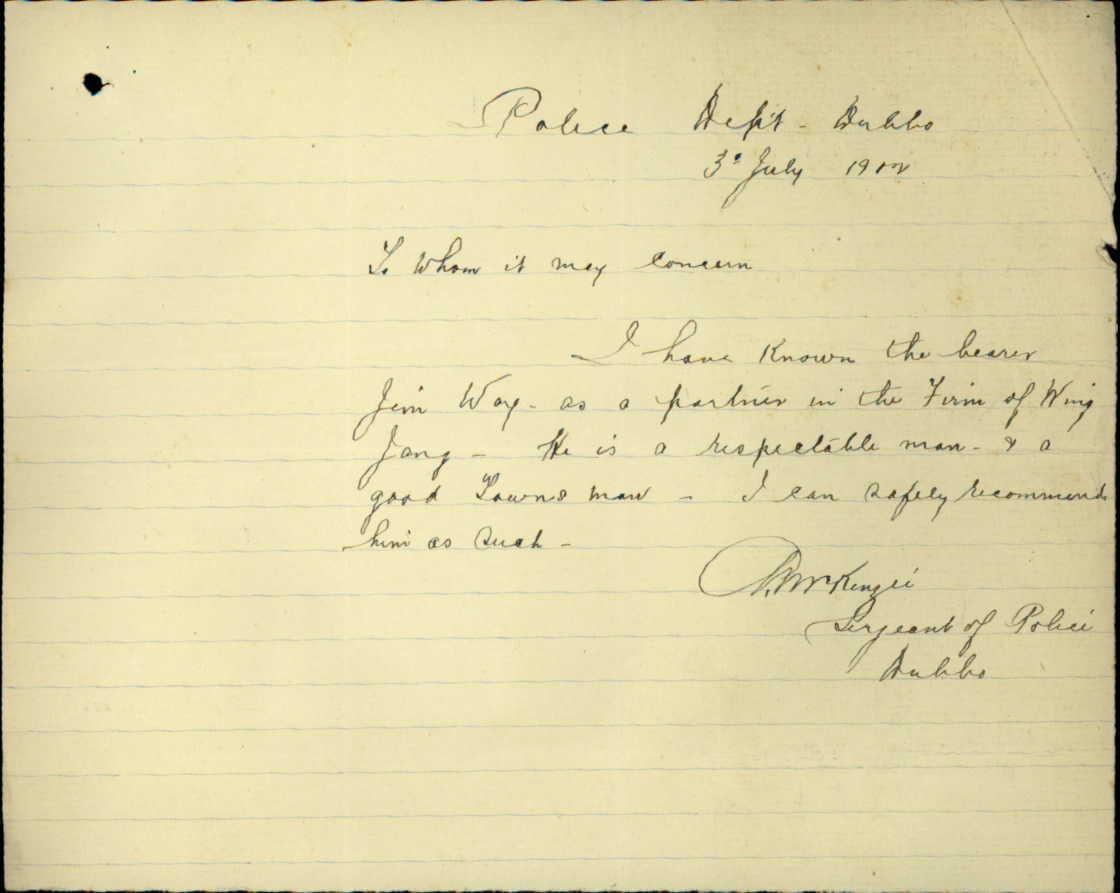 Police Dep't - Dubbo
3d July 1902
To Whom it may Concern
I have Known the bearer
Jim Way - as a partner in the Firm of Wing
Jang - He is a respectable man - & a
good Towns man - I can safely recommend
him as Such -
McKenzie
Sergeant of Police
Dubbo